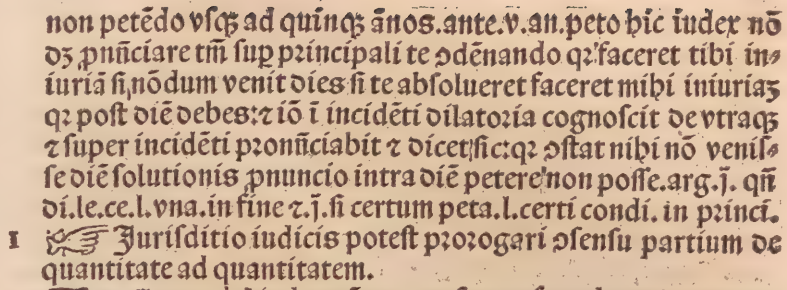 non petẽdo vſqꝫ ad quinqꝫ ãnos.ante.v.an.peto hic iudex nõ
dꝫ ꝓnũciare tm̃ ſuꝑ principali te ↄdẽnando qꝛ faceret tibi in⸗
iuriã ſi nõdum venit dies ſi te abſolueret faceret mihi iniuriaꝫ
qꝛ poſt diẽ debes:⁊ iõ ĩ incidẽti dilatoria cognoſcit de vtraqꝫ
⁊ ſuper incidẽti pronũciabit ⁊ dicet ſic:qꝛ ↄſtat nihi nõ veniſ⸗
ſe diẽ ſolutionis ꝓnuncio intra diẽ petere non poſſe.arg.j̃. qñ
di.le.ce.l.vna.in fine ⁊.j̃.ſi certum peta.l.certi condi. in princi.
1 ☞ Juriſditio iudicis poteſt prorogari ↄſenſu partium de
quantitate ad quantitatem.